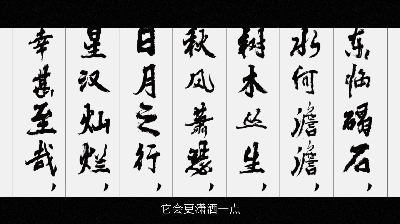 东临碣石，
水何澹澹，
树木丛生，
秋风萧瑟，
日月之行，
星汉灿烂，
幸甚至哉，
它会更潇洒一点